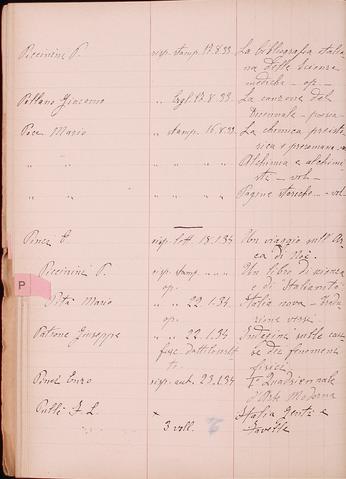 Piccinini P. risp. stamp. 13.8.33 La bibliografia italia-
na delle scienze
mediche - op. -
Pollano Giacomo " bigl. 13.8.33 La canzone del
Decennale - poesia -
Poce Mario " stamp. 16.8.33 La chimica preisto-
rica e preromana - "
" " " " " Alchimia e alchimi-
sti - vol. -
" " " " " Pagine storiche - vol.
Pinci E. risp. lett. 18.1.34 Un viaggio nell'Ar-
ca di Noè.
Piccinini P. risp. stamp. " " " Un libro di scienza
op. e di Italianità
P
Pita Mario " " 22.1.34 Italia nova -
op. versi
Patrone Giuseppe " " 22.1.34 Indagini sulle cau-
fasc. se dei fenomeni
fisici
Ponci Enzo risp. aut. 23.1.34 Quadriennale
d'Arte Moderna
Pullè F. L. Italia Genti e
3 voll. Favelle